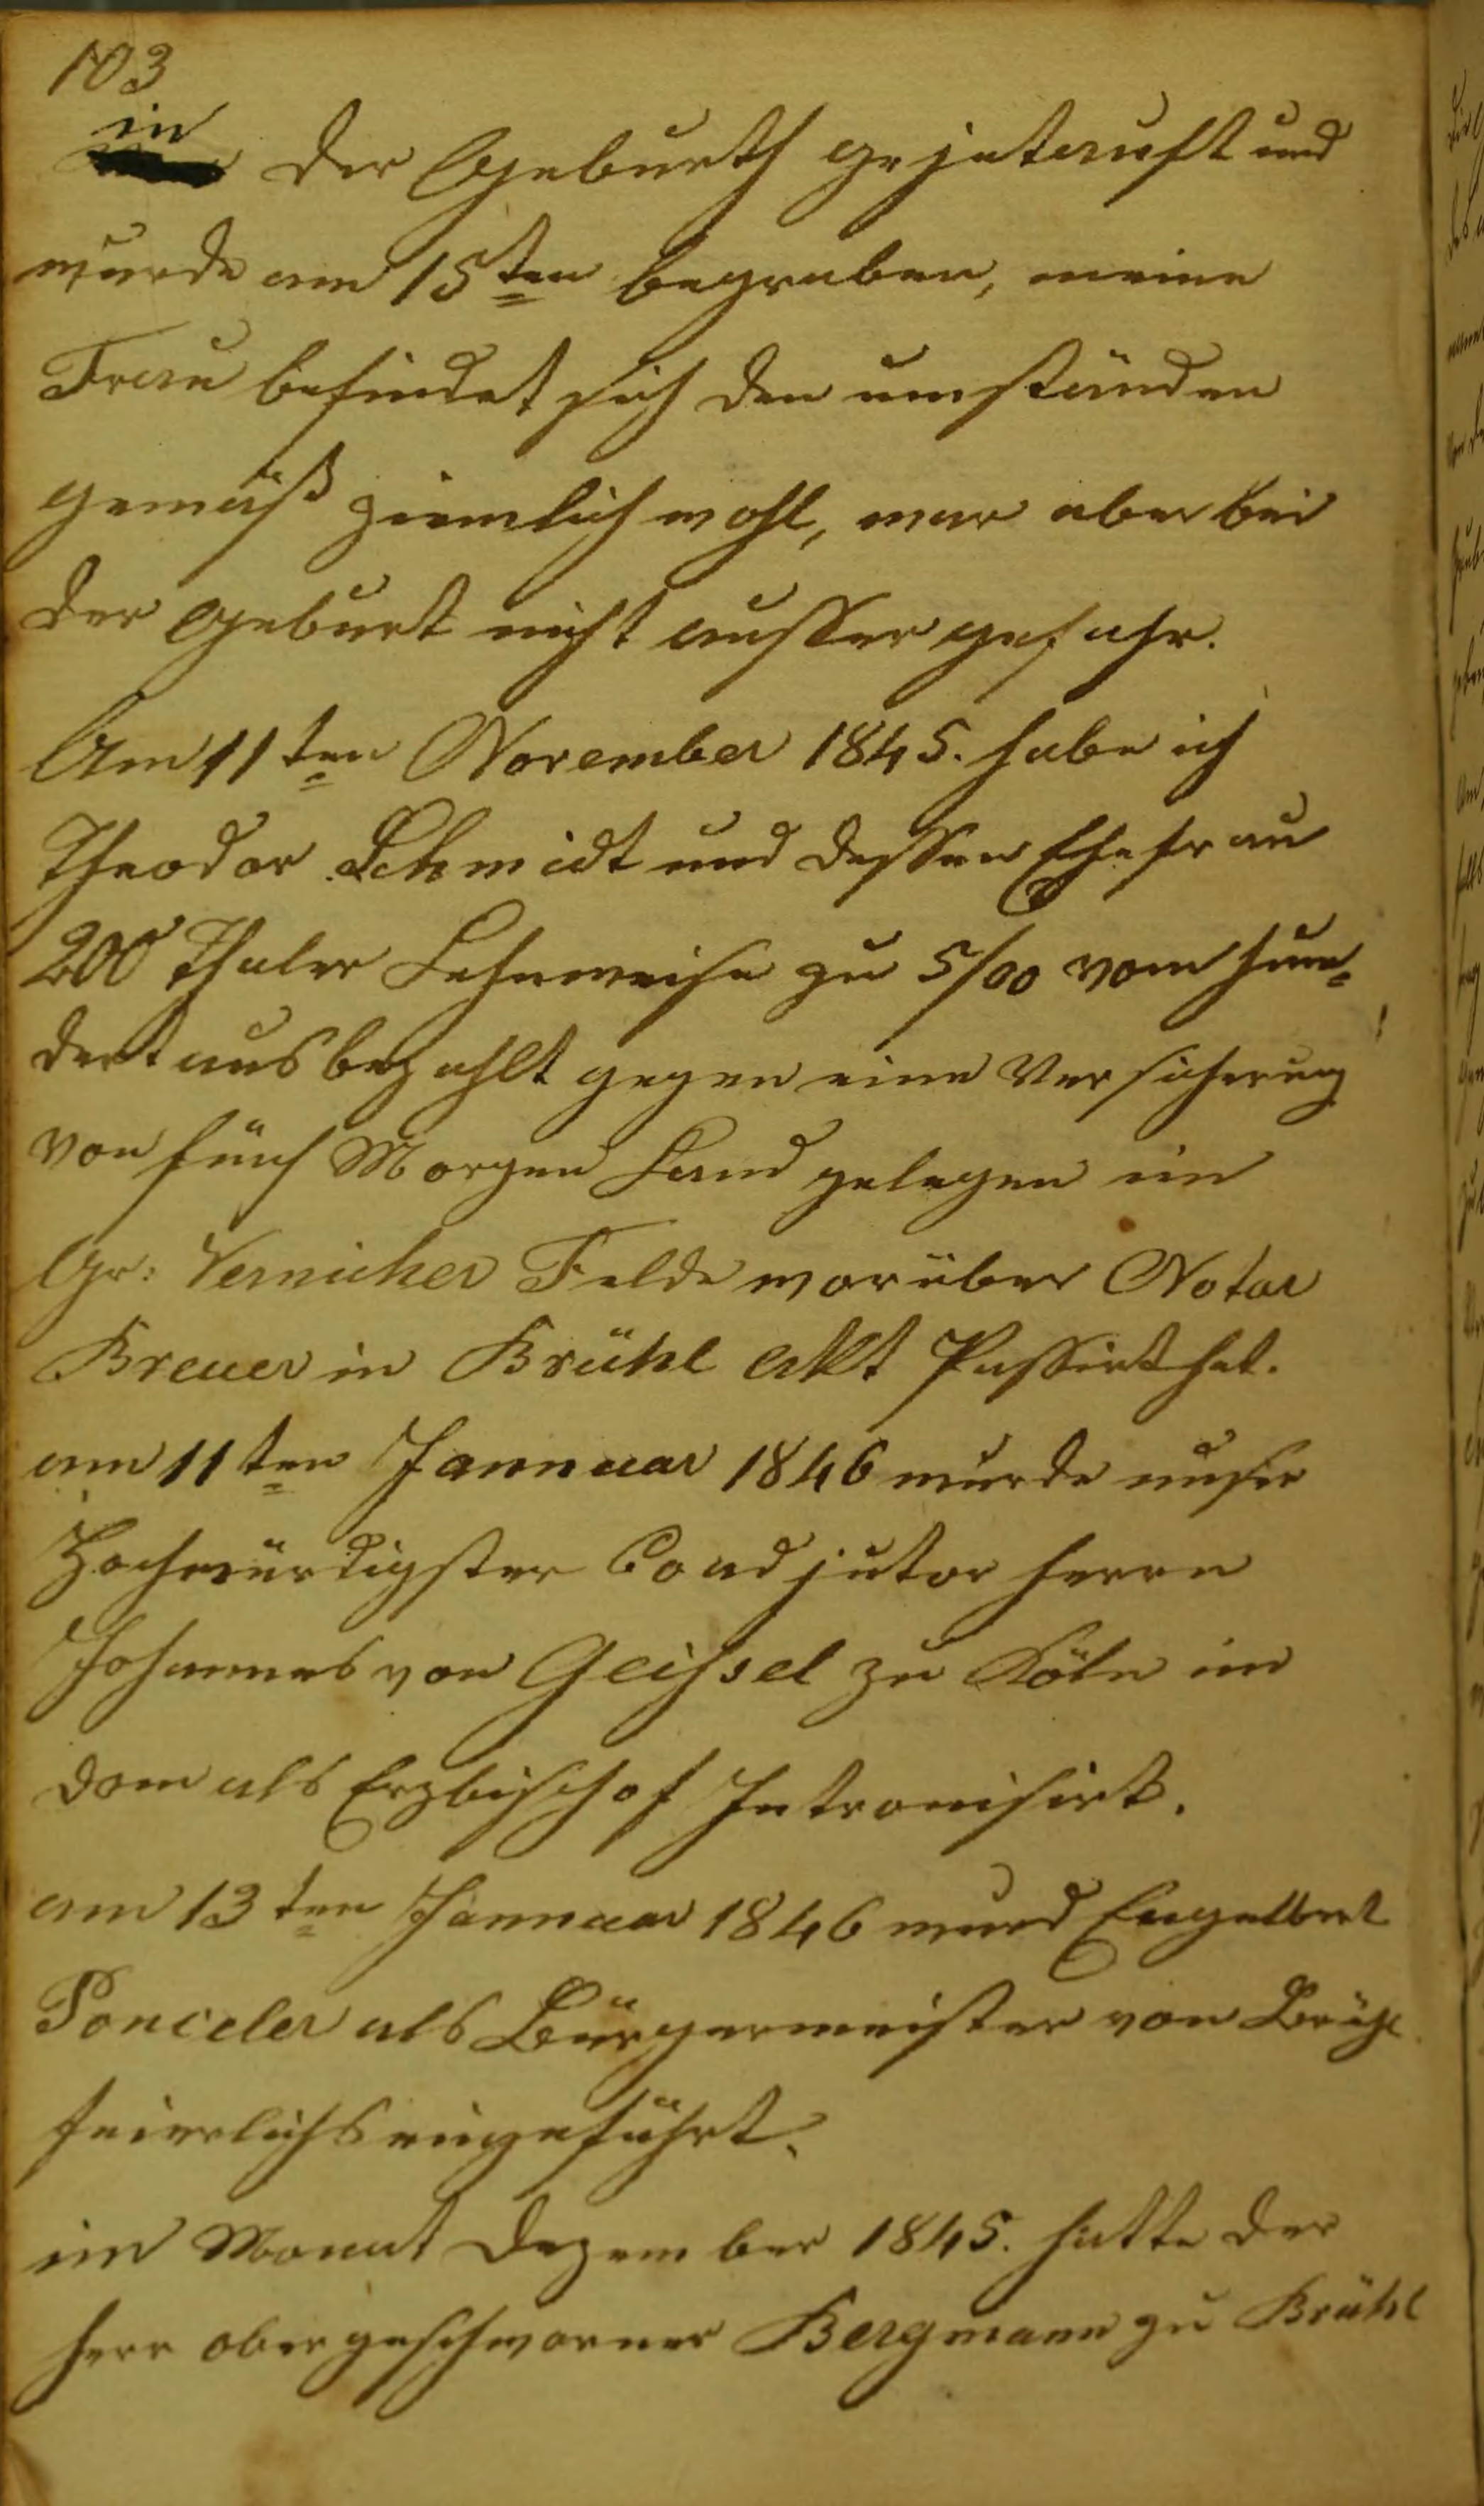 103
in
der Geburth gejetauft und
wurde am 15ten begraben, meine
Frau befindet sich den umständen
gemäß ziemlich wohl, war aber bei
der Geburt nicht ausser gefahr.
Am 11ten November 1845. habe ich
Theodor Schmidt und dessen Ehefrau
200 Thaler Lehnweise zu 5/00 vom hun=
dert ausbezahlt gegen eine Versicherung
von fünf Morgen Land gelegen im
Gr: Vernicher Felde worüber Notar
Breuer in Brühl Akt Passirt hat.
am 11ten Jannuar 1846 wurde unser
Hochwürdigster Coadjutor herrn
Johannes von Geissel zu Köln im
dom als Erzbischof Intronisirt.
am 13ten Jannuar 1846 wurd Engelbert
Poncelet als Bürgermeister von Brühl
feierlichs eingeführt.
im Monat Dezember 1845. hatte der
herr obergeschworner Bergmann zu Brühl